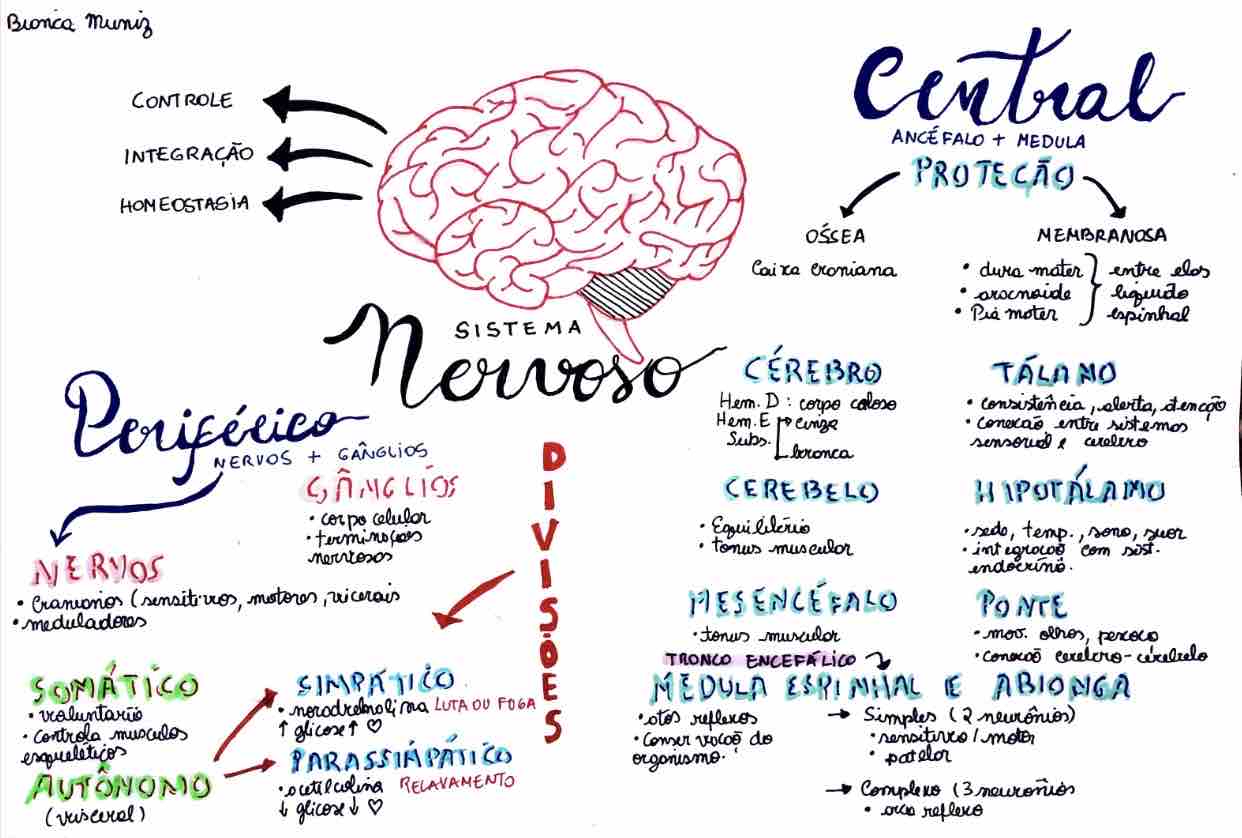 Bionca Muniz
CONTROLE
INTEGRAÇÃO
HOMEOSTASIA
SISTEMA
Nervoso
Central
ANCÉFALO + MEDULA
PROTEÇÃO
ÓSSEA
Caixa croniana
MEMBRANOSA
• dura mater
• aracnoide
• Pia mater
entre elas
liquido
espinhal
CÉREBRO
Hem. D : corpo caloso
Hem. E
Subs.
cinza
branca
TÁLAMO
• consistência, alerta, atenção
• conexão entre sistemas
sensorial e cérebro
CEREBELO
• Equilibrio
• tonus muscular
HIPOTÁLAMO
• sede, temp., sono, suor
• integração com sist.
endócrino.
MESENCÉFALO
• tonus muscular
PONTE
• mov. olhos, pescoço
• conexão cerebro-cérebelo
TRONCO ENCEFÁLICO
MEDULA ESPINHAL E ABIONGA
• atos reflexos
• Conservação do
organismo.
→ Simples (2 neurônios)
• sensitivo/motor
• patelar
→ Complexo (3 neurônios
• arco reflexo
Periférico
NERVOS + GÂNGLIOS
GÂNGLIOS
• corpo celular
• terminações
nervosas
NERVOS
• cranianos (sensitivos, motores, vicerais
• meduladores
DIVISÕES
SOMÁTICO
• voluntario
• Controla musculos
esqueléticos
AUTÔNOMO
(visceral)
SIMPÁTICO
• noradrenalina LUTA OU FOGA
↑ glicose ↑ ♡
PARASSIMPÁTICO
• acetilcolina RELAVAMENTO
↓ glicose ↓ ♡